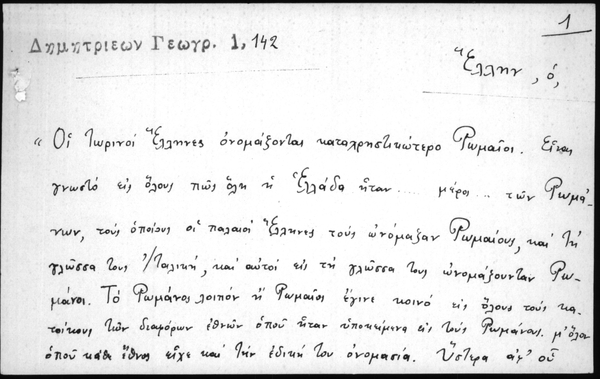 1
Δημητριεων Γεωγρ. 1, 142
Ἕλλην, ὁ,
“ Οἱ τωρινοί Ἕλληνες ὀνομάζονται καταχρηστικώτερο Ρωμαῖοι. Εἶναι
γνωστό εἰς ὅλους πῶς ὅλη ἡ Ἑλλάδα ἦταν ... μέρος ... τῶν Ρωμά-
νων, τούς ὁποίους οἱ παλαιοί Ἕλληνες τούς ὠνόμαζαν Ρωμαίους, καί τή
γλῶσσα τους Ἰταλική, καί αὐτοί εἰς τή γλῶσσα τους ὠνομάζουνταν Ρω-
μάνοι. Τό Ρωμάνος λοιπόν ἤ Ρωμαῖος ἔγινε κοινό εἰς ὅλους τούς κα-
τοίκους τῶν διαφόρων ἐθνῶν ὁποῦ ἦταν ὑποκείμενα εἰς τούς Ρωμάνους. μ' ὅλον
ὁποῦ κάθε ἔθνος εἶχε καί τήν ἐδική του ὀνομασία. Ὕστερα ἀφ' οὗ